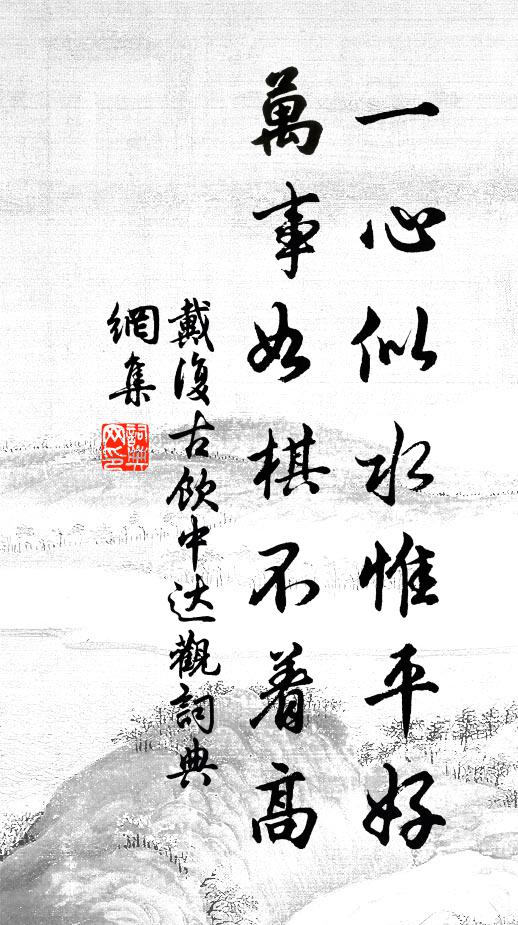 一心似水惟平好
萬事如棋不着高
戴復古飲中达觀詞典
網集